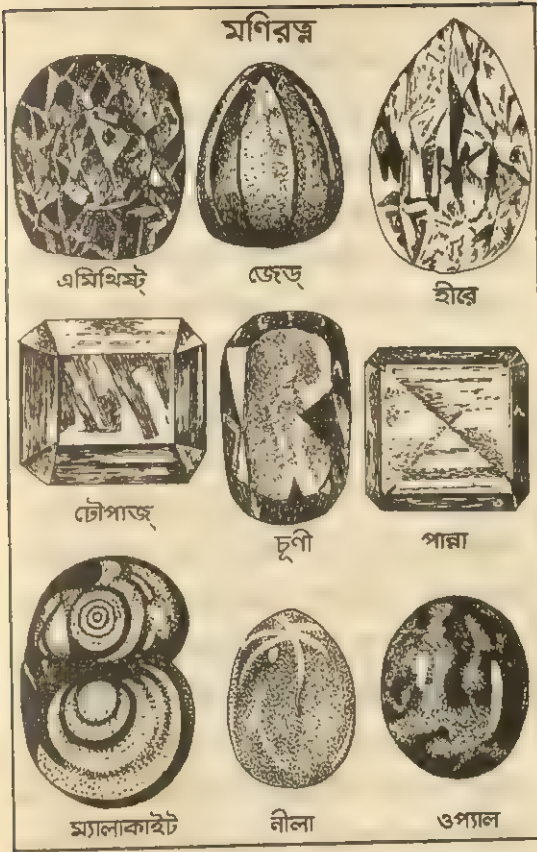 মণিরত্ন
এমিথিষ্ট্
জেড্
হীরে
টোপাজ্
চূণী
পান্না
ম্যালাকাইট
নীলা
ওপ্যাল